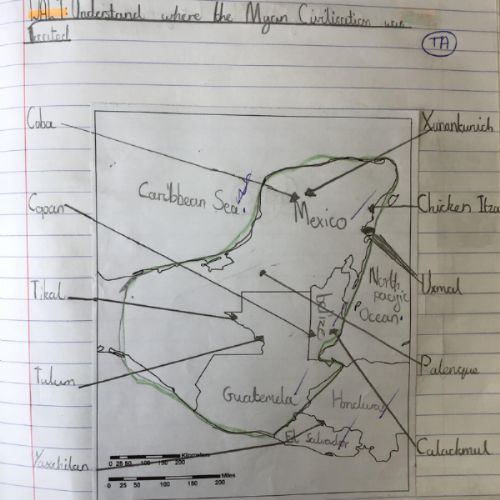 WALT: Understand where the Myan Civilisation was
located
TA
Coba
Xunantunich
Caribbean Sea.
Mexico
Chicken Itza
Copan
Uxmal
North
pacific
Ocean.
Tikal
Belize
Palenque
Tulum
Guatemela
Honduras
Calackmul
El Salvador
Yaxchilan
0 25 50 100 150 200 Kilometers
0 25 50 100 150 200 Miles